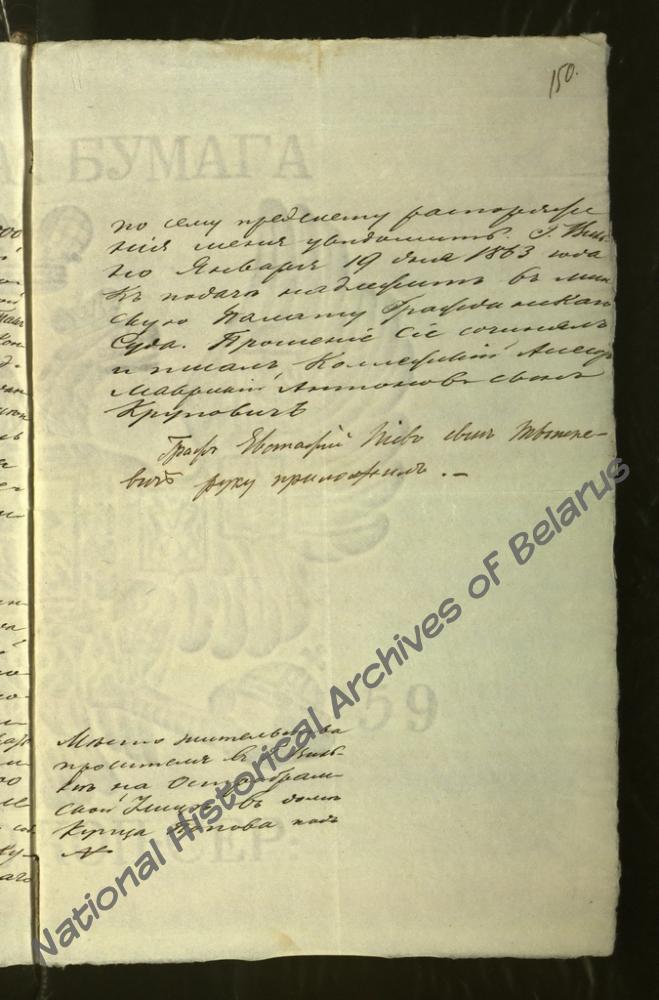 150.
БУМАГА
по сему предмету распоряже
ния меня уведомить. Г. Виль-
но Января 19 дня 1863 года
Къ подачѣ надлежитъ въ Мин
скую Палату Гражданскаго
Суда. Прошеніе сіе сочинялъ
и писалъ Коллежскій Асесоръ
Маврикій Антоновъ сынъ
Круповичъ
Графъ Евстафій сынъ Тышке-
вичъ руку приложилъ. —
59
Мѣсто жительства
просителя въ г. Виль-
нѣ на Остробрам-
ской улицѣ въ домѣ
Купца Попова подъ
№
СЕР:
National Historical Archives of Belarus